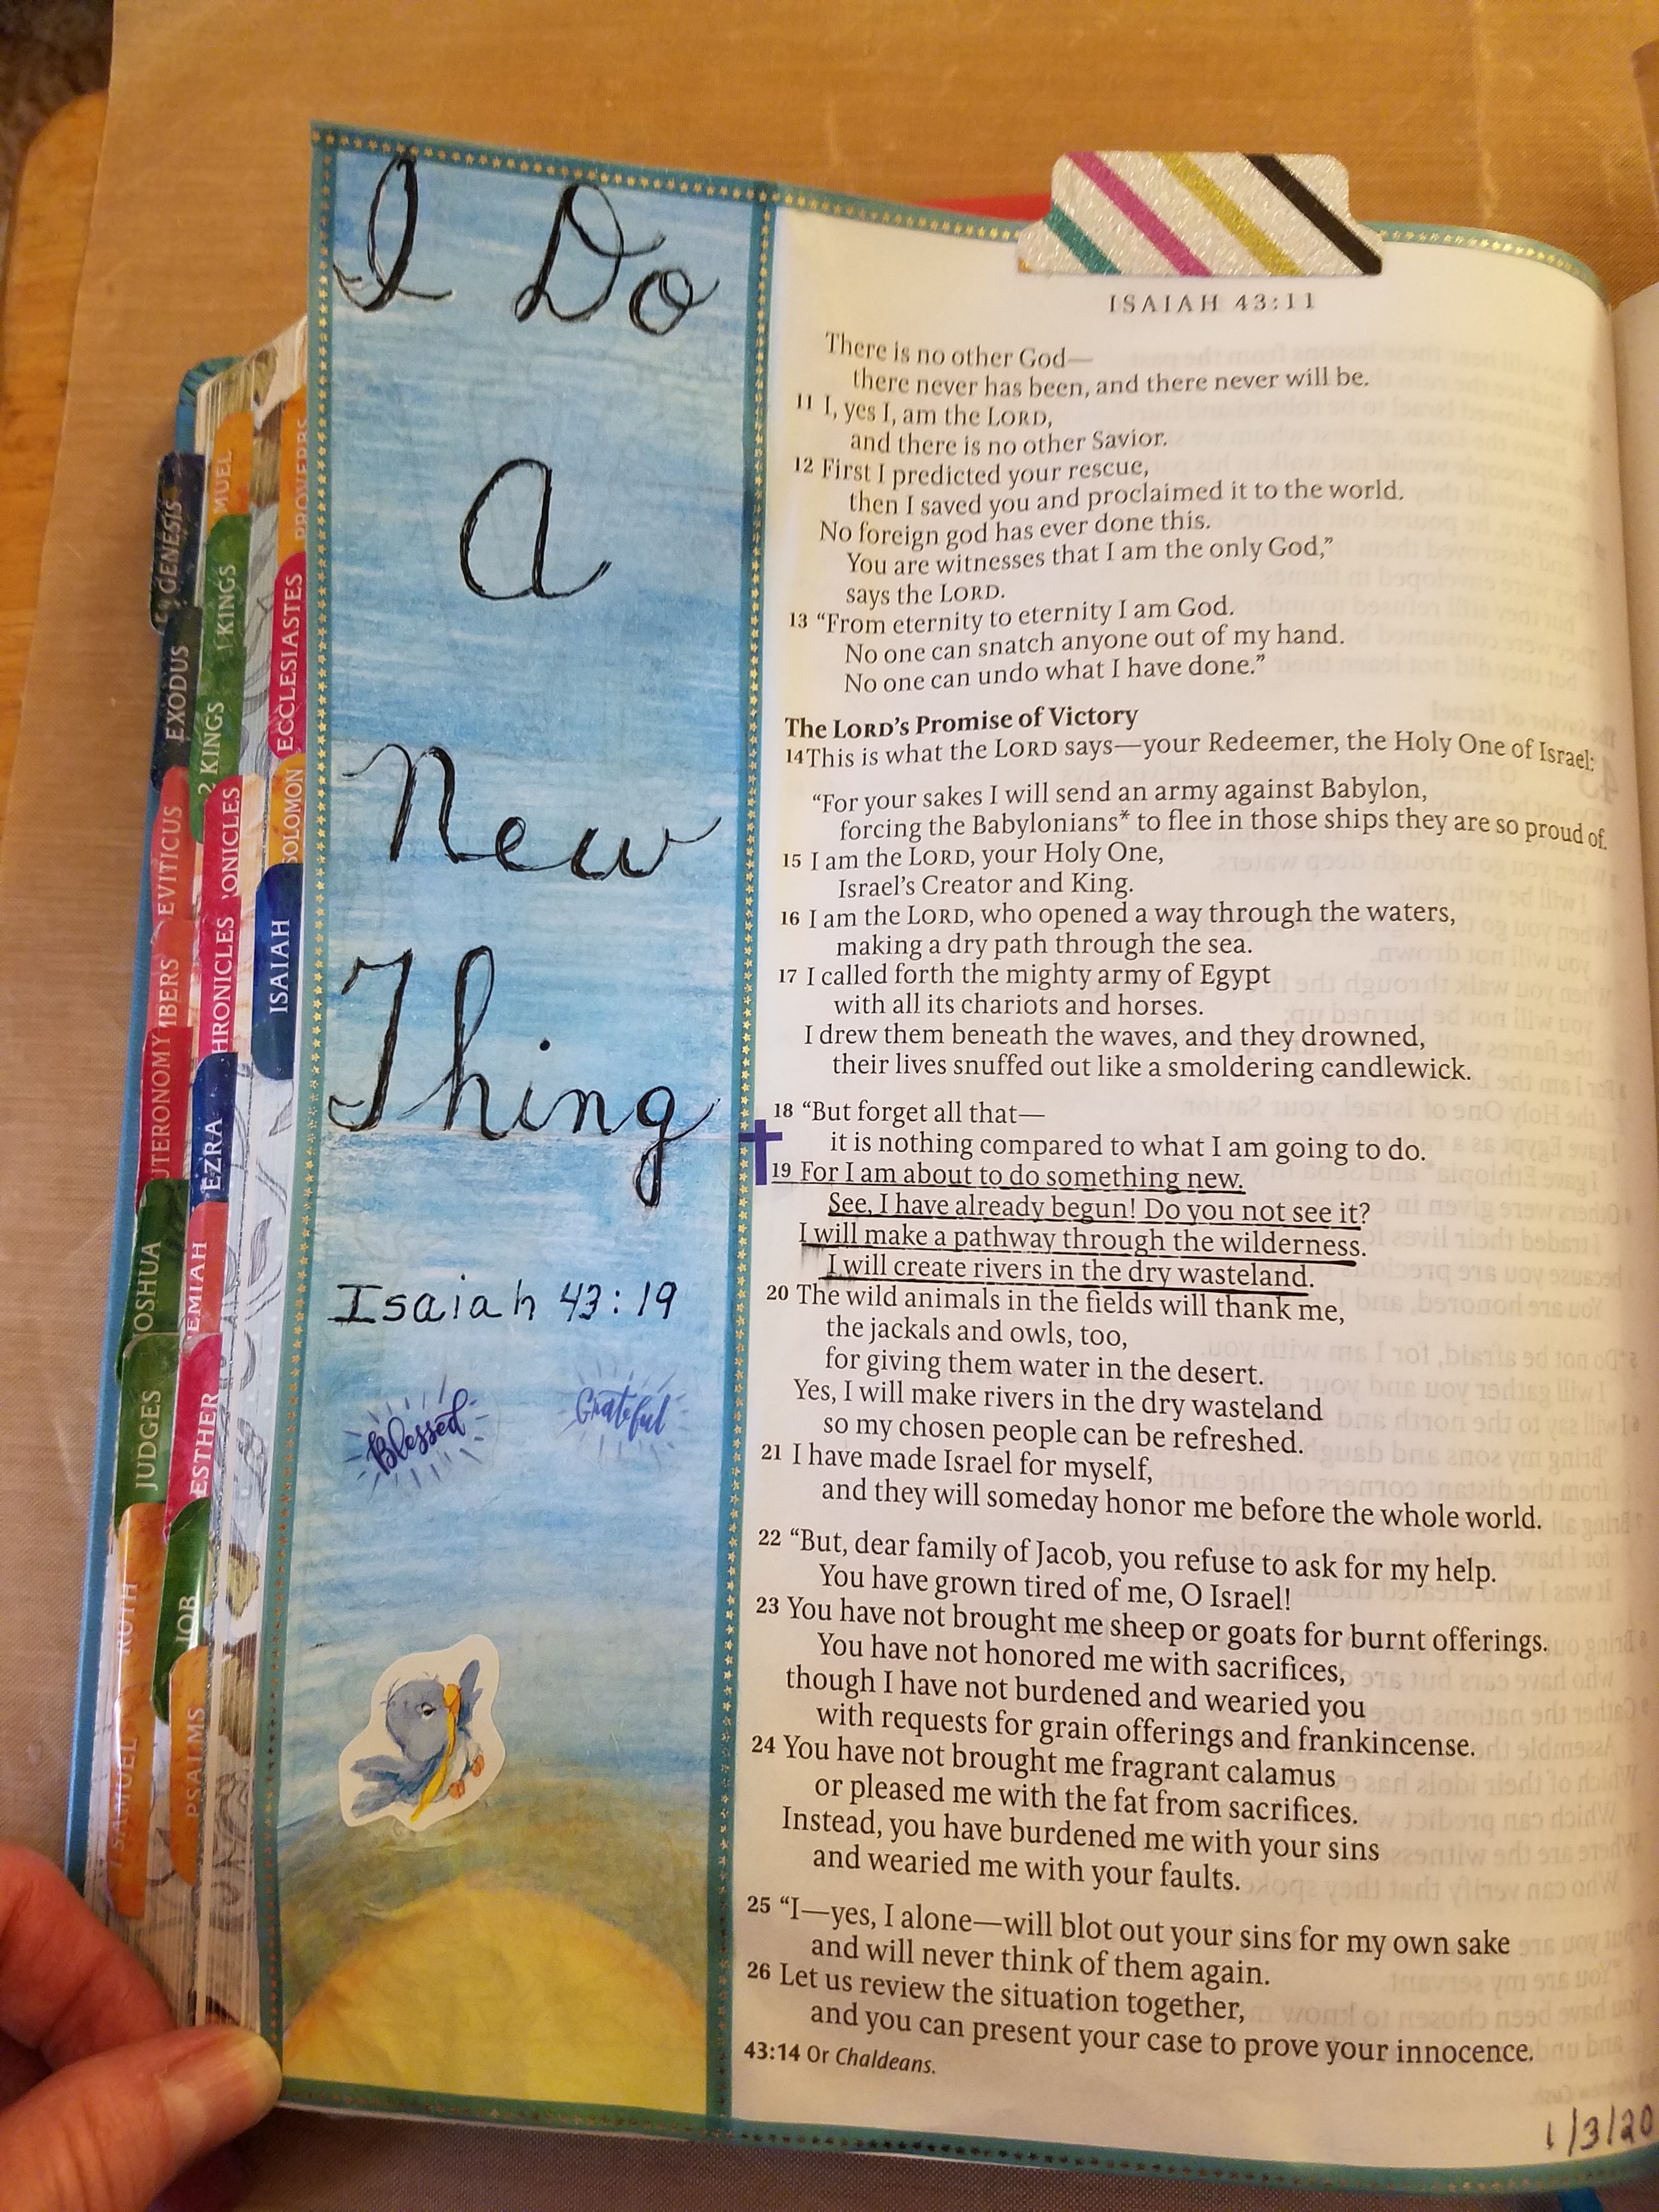 I Do
A
New
Thing
Isaiah 43:19
Blessed
Grateful
GENESIS
EXODUS
EVITICUS
MBERS
UTERONOMY
JOSHUA
JUDGES
RUTH
1 SAMUEL
MUEL
1 KINGS
2 KINGS
ONICLES
HRONICLES
EZRA
EMIAH
ESTHER
JOB
PSALMS
PROVERBS
ECCLESIASTES
SOLOMON
ISAIAH
ISAIAH 43:11
There is no other God—
there never has been, and there never will be.
11 I, yes I, am the LORD,
and there is no other Savior.
12 First I predicted your rescue,
then I saved you and proclaimed it to the world.
No foreign god has ever done this.
You are witnesses that I am the only God,”
says the LORD.
13 “From eternity to eternity I am God.
No one can snatch anyone out of my hand.
No one can undo what I have done.”
The LORD’s Promise of Victory
14 This is what the LORD says—your Redeemer, the Holy One of Israel:
“For your sakes I will send an army against Babylon,
forcing the Babylonians* to flee in those ships they are so proud of.
15 I am the LORD, your Holy One,
Israel’s Creator and King.
16 I am the LORD, who opened a way through the waters,
making a dry path through the sea.
17 I called forth the mighty army of Egypt
with all its chariots and horses.
I drew them beneath the waves, and they drowned,
their lives snuffed out like a smoldering candlewick.
18 “But forget all that—
it is nothing compared to what I am going to do.
19 For I am about to do something new.
See, I have already begun! Do you not see it?
I will make a pathway through the wilderness.
I will create rivers in the dry wasteland.
20 The wild animals in the fields will thank me,
the jackals and owls, too,
for giving them water in the desert.
Yes, I will make rivers in the dry wasteland
so my chosen people can be refreshed.
21 I have made Israel for myself,
and they will someday honor me before the whole world.
22 “But, dear family of Jacob, you refuse to ask for my help.
You have grown tired of me, O Israel!
23 You have not brought me sheep or goats for burnt offerings.
You have not honored me with sacrifices,
though I have not burdened and wearied you
with requests for grain offerings and frankincense.
24 You have not brought me fragrant calamus
or pleased me with the fat from sacrifices.
Instead, you have burdened me with your sins
and wearied me with your faults.
25 “I—yes, I alone—will blot out your sins for my own sake
and will never think of them again.
26 Let us review the situation together,
and you can present your case to prove your innocence.
43:14 Or Chaldeans.
1/3/20